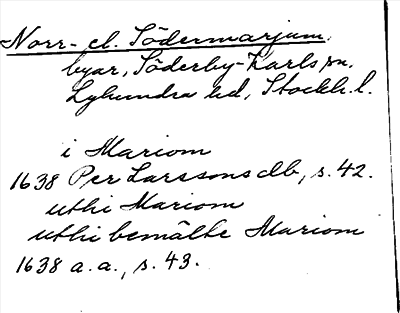 Norr- el. Södermarjum,
byar, Söderby-Karls sn,
Lyhundra hd, Stockh. l.
i Mariom
1638 Per Larssons db, s. 42.
uthi Mariom
uthi bemälte Mariom
1638 a.a., s. 43.